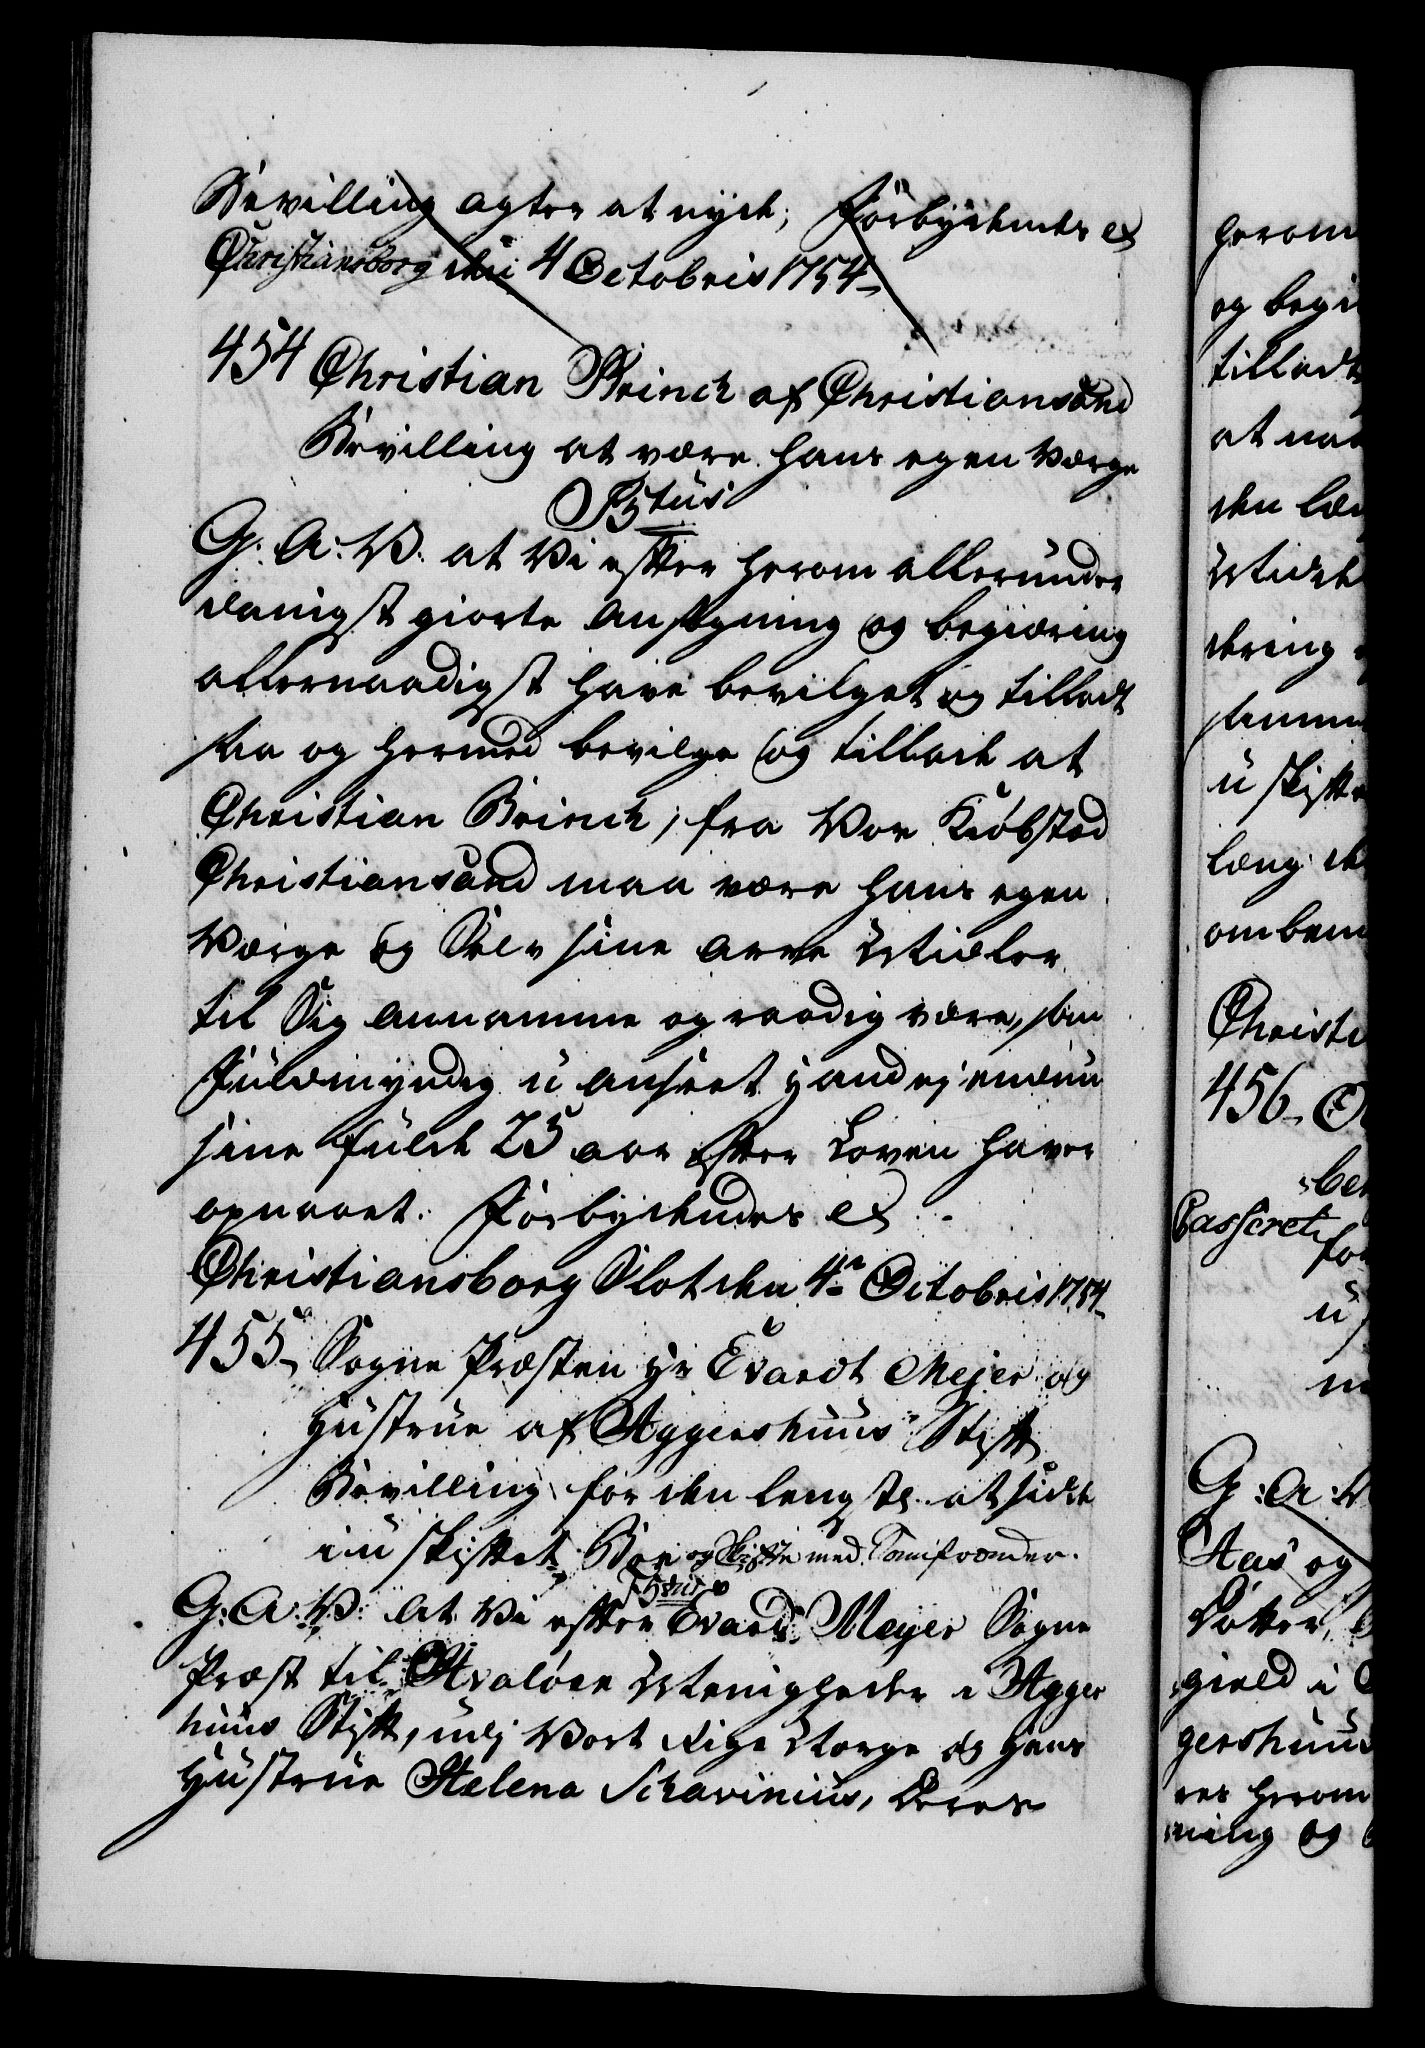 Bevilling agter at nyde, Forbydendes &
Christiansborg den 4 Octobris 1754
454 Christian Brinch af Christiansand
Bevilling at være hans egen Værge
G: A: V: at Vi efter herom allerunder
danigst giorte Ansøgning og begiæring
allernaadigst have bevilget og tilladt
saa og hermed bevilge og tillade at
Christian Brinch, fra Vor Kiøbsted
Christiansand maa være hans egen
Værge og Selv sine arve Midler
til Sig annamme og raadig være, som
Fuldmyndig u anseet hand ej endnu
sine fulde 25 aar efter Loven haver
opnaaet. Forbydendes &
Christiansborg Slot den 4de Octobris 1754
455 Sogne Præsten Hr Evardt Mejer og
Hustrue af Aggershuus Stift
Bevilling for den lengst l. at sidde
i u skiftet Boe og Skifte med Samfrænder.
G: A: V: At Vi efter Evard Meyer Sogne
Præst til Hvaløer Menigheder i Agger
huus Stift, udj Vort Rige Norge og hans
Hustrue Helena Schavinius, Deres
herom
og begi
tillad
at naa
den læn
Midde
dring
samm
u skift
læng de
ombem
Christi
456
be
Passeret
for
u
G: A: V
Aas og
Døtter,
gield i
gershuus
res herom
ning og